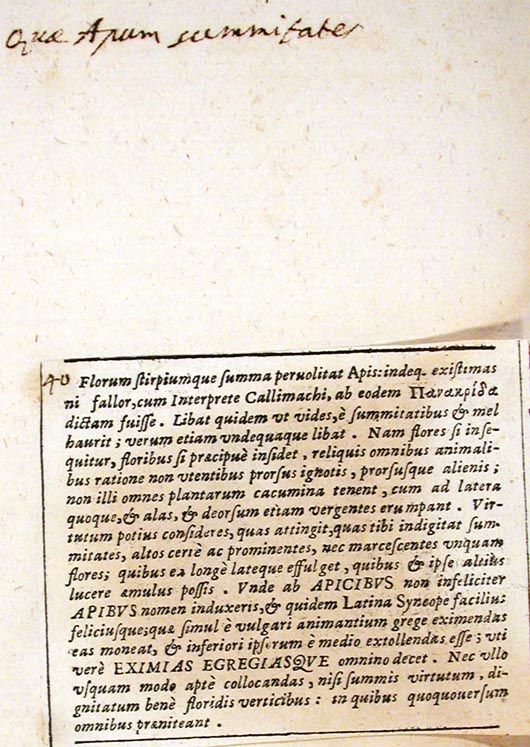 Quæ Apum summitates
40 Florum stirpiumque summa peruolitat Apis: indeq. existimas
ni fallor, cum Interprete Callimachi, ab eodem Πανακρίδα
dictam fuisse. Libat quidem vt vides, è summitatibus & mel
haurit; verum etiam vndequaque libat. Nam flores si inse-
quitur, floribus si præcipuè insidet, reliquis omnibus animali-
bus ratione non vtentibus prorsus ignotis, prorsusque alienis;
non illi omnes plantarum cacumina tenent, cum ad latera
quoque, & alas, & deorsum etiam vergentes erumpant. Vir-
tutum potius consideres, quas attingit, quas tibi indigitat sum-
mitates, altos certè ac prominentes, nec marcescentes vnquam
flores; quibus ea longè lateque effulget, quibus & ipse altius
lucere æmulus possis. Vnde ab APICIBVS non infeliciter
APIBVS nomen induxeris, & quidem Latina Syncope facilius
feliciusque; quæ simul è vulgari animantium grege eximendas
eas moneat, & inferiori ipsarum è medio extollendas esse; vti
verè EXIMIAS EGREGIASQVE omnino decet. Nec vllo
vsquam modo aptè collocandas, nisi summis virtutum, di-
gnitatum benè floridis verticibus: in quibus quoquouersum
omnibus præniteant.